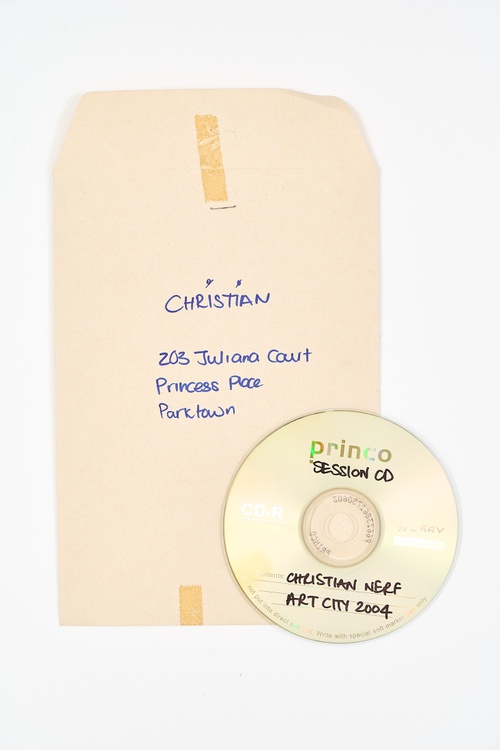 CHRISTIAN
203 Juliana Court
Princess Place
Parktown
princo
SESSION CD
CD-R
CHRISTIAN NERF
ART CITY 2004
Write with special soft marker
only